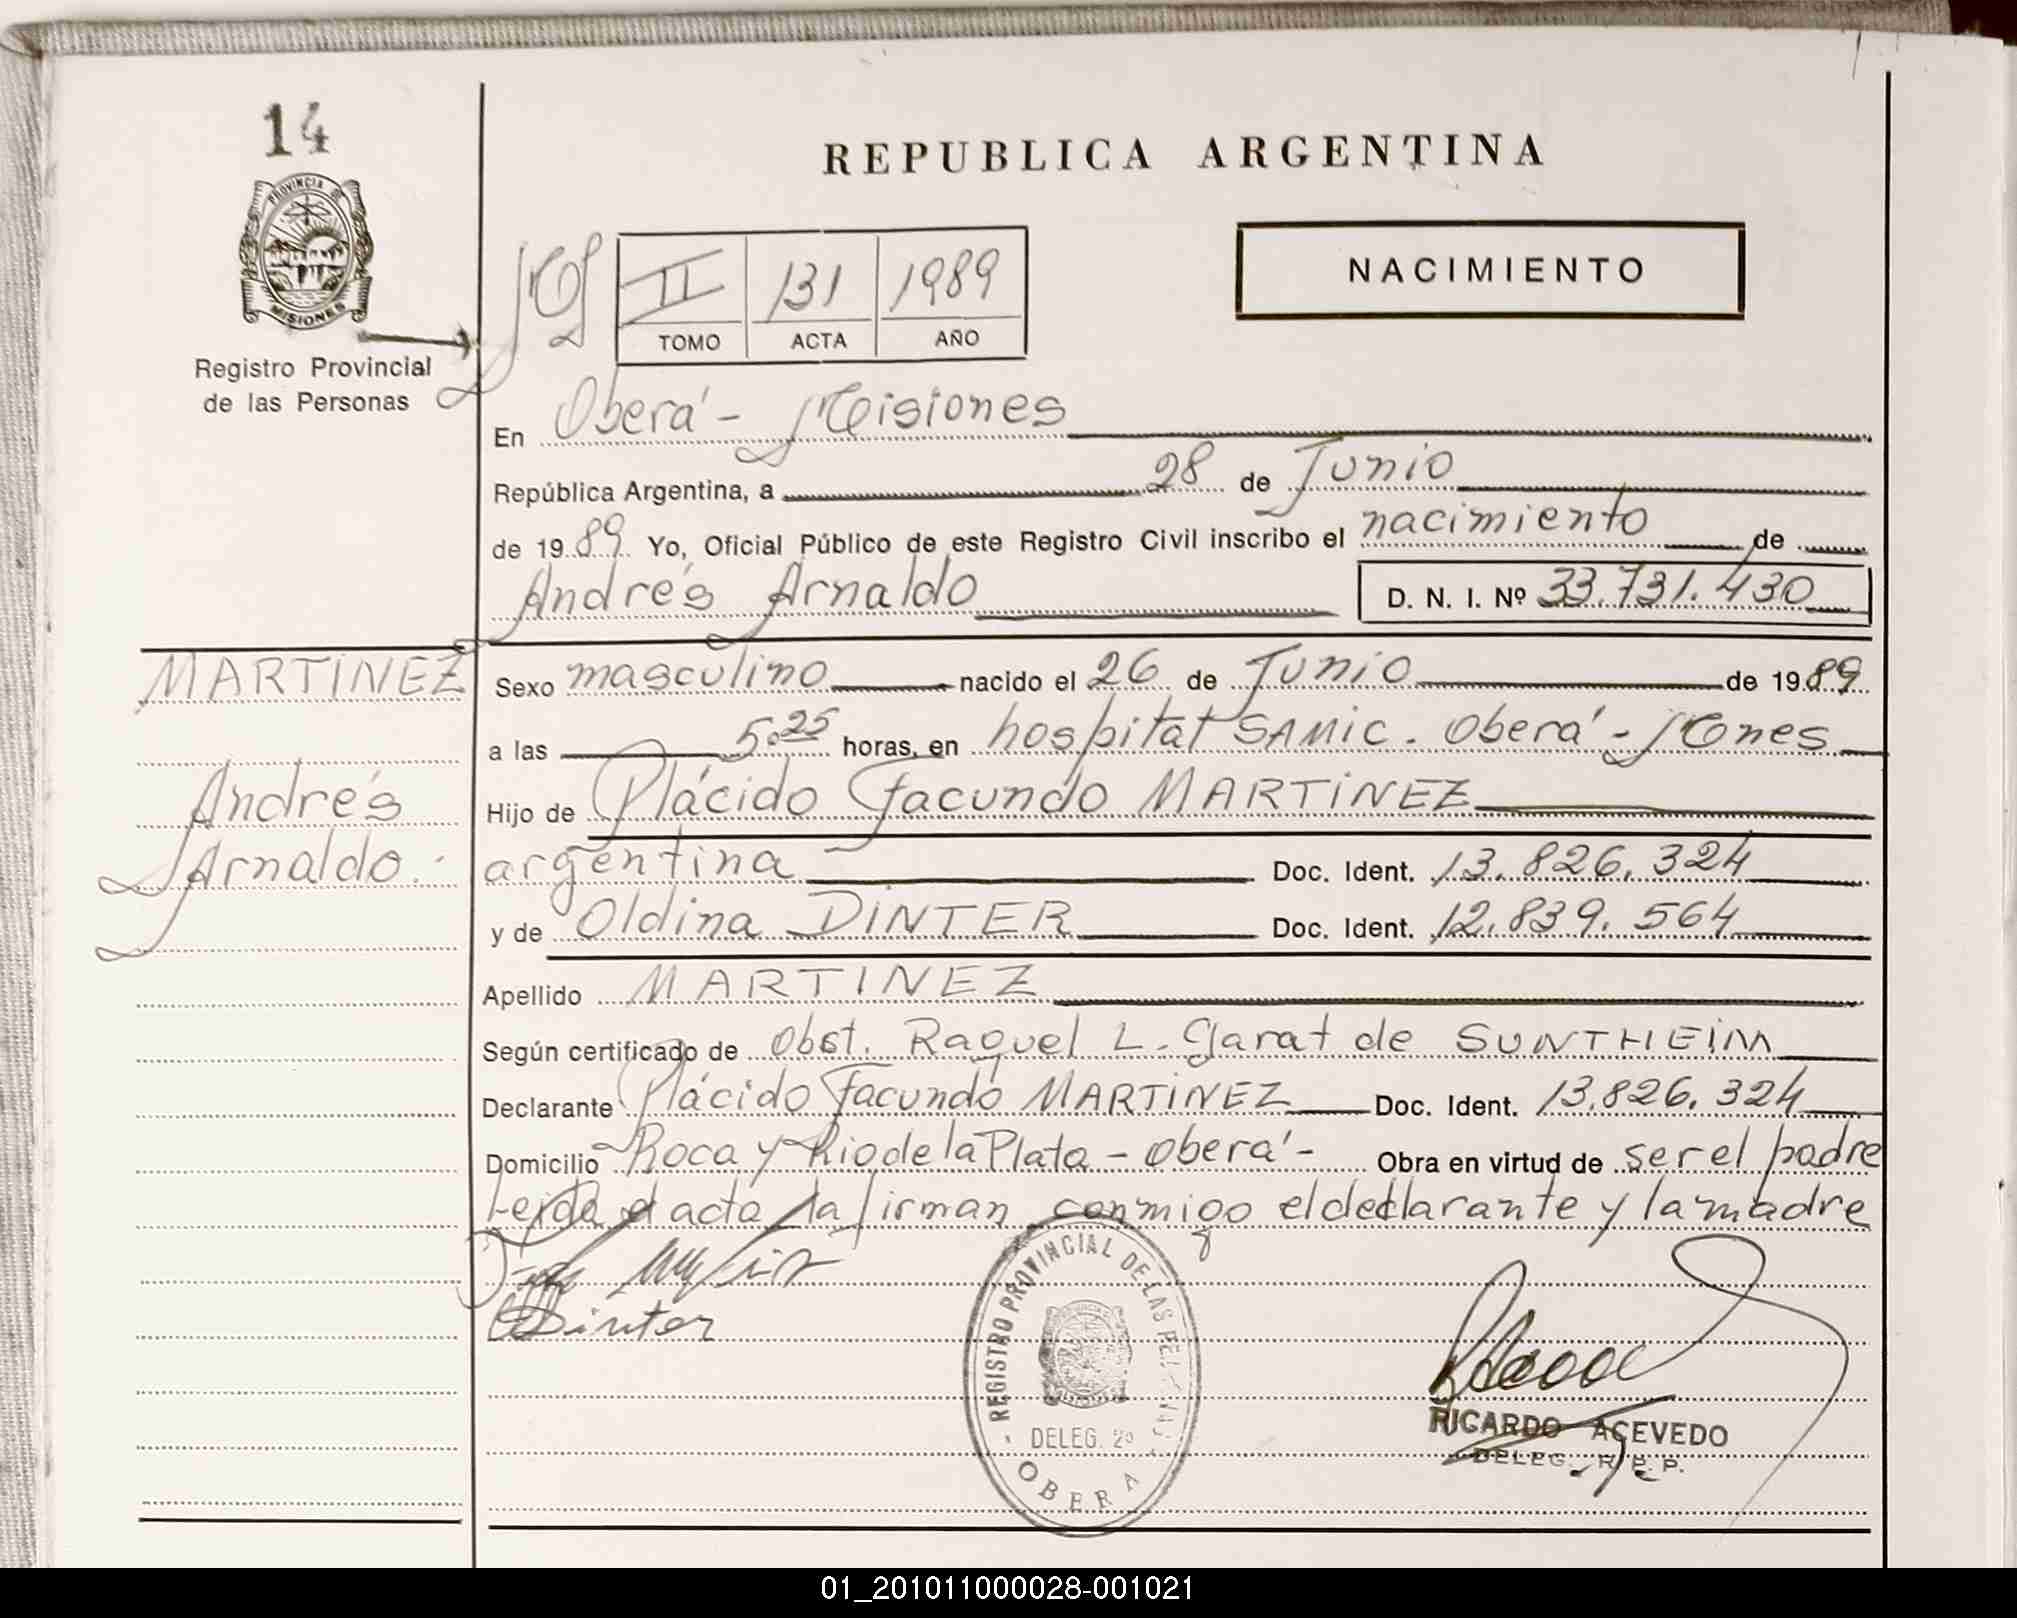 14
PROVINCIA DE
MISIONES
Registro Provincial
de las Personas
REPUBLICA ARGENTINA
II 131 1989
TOMO ACTA AÑO
NACIMIENTO
En Oberá - Misiones
República Argentina, a 28 de Junio
de 1989 Yo, Oficial Público de este Registro Civil inscribo el nacimiento de
Andrés Arnaldo D. N. I. Nº 33.731.430
MARTINEZ
Andrés
Arnaldo.
Sexo masculino nacido el 26 de Junio de 1989
a las 5.25 horas, en hospital SAMIC. Oberá - Mones
Hijo de Plácido Facundo MARTINEZ
argentina Doc. Ident. 13.826.324
y de Oldina DINTER Doc. Ident. 12.839.564
Apellido MARTINEZ
Según certificado de Obst. Raquel L. Garat de SUNTHEIM
Declarante Plácido Facundo MARTINEZ Doc. Ident. 13.826.324
Domicilio Roca y Rio de la Plata - Oberá - Obra en virtud de ser el padre
Leida el acta la firman conmigo el declarante y la madre
Dinter
REGISTRO PROVINCIAL DE LAS PERSONAS
DELEG. 2ª
OBERA
RICARDO ACEVEDO
DELEG. R. P. P.
01_201011000028-001021